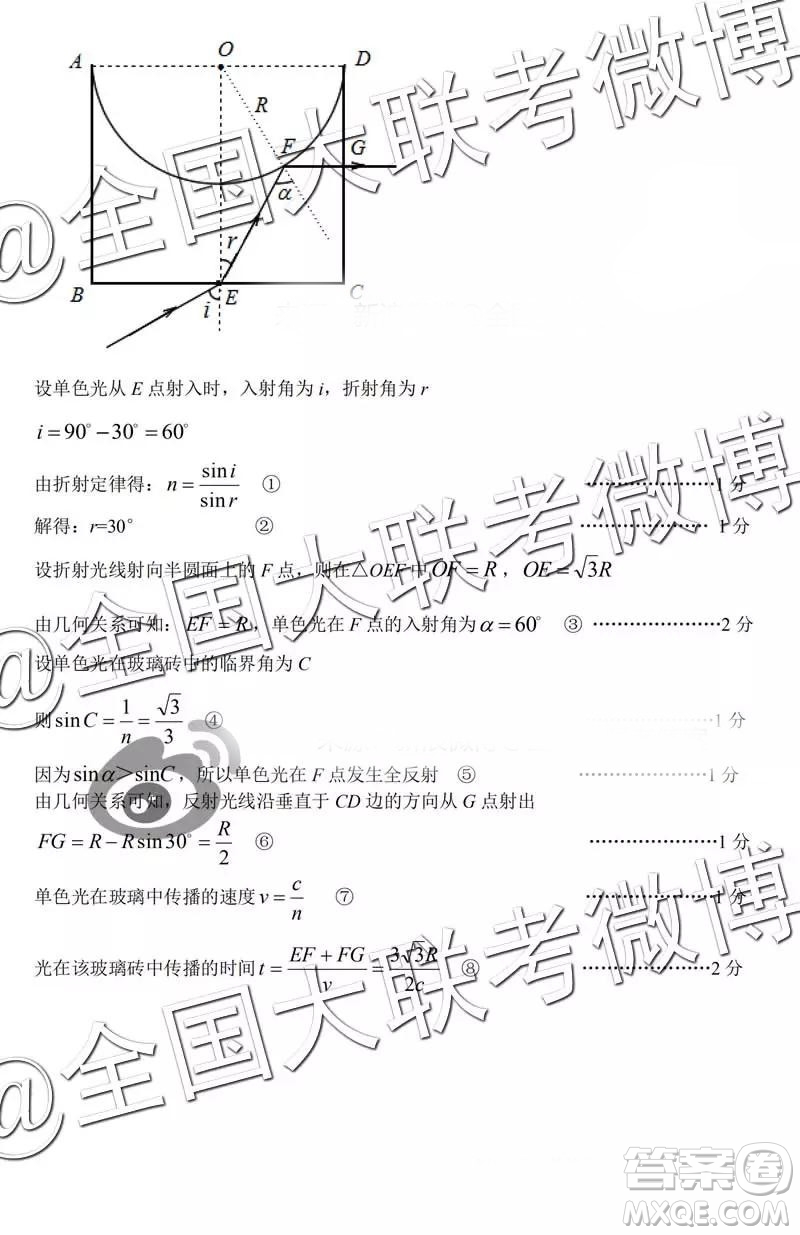 A O D
R
F G
α
r
B E C
i
@全国大联考微博
设单色光从 E 点射入时，入射角为 i，折射角为 r
i = 90° − 30° = 60°
由折射定律得：n = sin i / sin r ① ……………………1 分
解得：r=30° ② …………………… 1 分
设折射光线射向半圆面上的 F 点，则在△OEF 中 OF = R，OE = √3R
由几何关系可知：EF = R，单色光在 F 点的入射角为 α = 60° ③ ……………………2 分
设单色光在玻璃砖中的临界角为 C
则 sin C = 1/n = √3/3 ④ ……………………1 分
因为 sinα > sinC，所以单色光在 F 点发生全反射 ⑤ ……………………1 分
由几何关系可知，反射光线沿垂直于 CD 边的方向从 G 点射出
FG = R − R sin30° = R/2 ⑥ ……………………1 分
@全国大联考微博
单色光在玻璃中传播的速度 v = c/n ⑦ ……………………1 分
光在该玻璃砖中传播的时间 t = (EF + FG)/v = 3√3R/2c ⑧ ……………………2 分
@全国大联考微博
答案卷
MXQE.COM